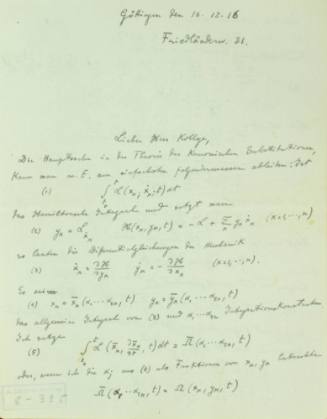 Göttingen den 16.12.16
Friedländerw. 31.
Lieber Herr Kollege,
Die Hauptsache in der Theorie der kanonischen Substitutionen,
kann man m. E. am einfachsten folgendermassen ableiten: Ist
(1) ∫ L(xₙ; ẋₙ; t) dt
das Hamiltonsche Integral und setzt man
(2) yₙ = L_ẋₙ H(xₙ, yₙ, t) = −L + Σ yₙ ẋₙ (n = 1, .., n)
so lauten die Differentialgleichungen der Mechanik
(3) ẋₙ = ∂H/∂yₙ ẏₙ = −∂H/∂xₙ (n = 1, .. n).
(4) xₙ = x̄ₙ(α₁ ... α₂ₙ, t) yₙ = ȳₙ(α₁ ... α₂ₙ, t)
das allgemeine Integral von (3) und α₁ ... α₂ₙ Integrationskonstanten
Ich setze
(5) ∫ L(x̄ₙ, ∂x̄ₙ/∂t, t) dt = Ω̄(α₁ ... α₂ₙ, t)
oder, wenn ich die αⱼ aus (4) als Funktionen von xₙ, yₙ
Ω̄(α₁ ... α₂ₙ, t) = Ω(xₙ, yₙ, t)